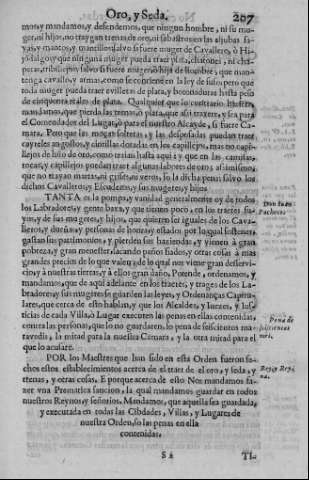 Oro, y Seda.
207
mos, y mandamos, y defendemos, que ningun hombre, ni su mu-
ger, ni hijo, no traygan trenas de oro, ni
yas, y mantos, y mantillos, salvo si fuere muger de Cavallero, ò Hi-
jodalgo, y que ninguna muger pueda traer chatones, ni cha-
perias, salvo si fuere muger, ò hija de hombre, que man-
tenga cavallo, y armas, como se contiene en la ley de suso, pero que
toda muger pueda traer evilletas de plata, y boronaduras hasta peso
de cincuenta reales de plata. Qualquier que lo contrario hiziere,
mandamos, que pierda las trenas, ò plata, que assi traxere, y sea para
el Comendador del Lugar, ò para el nuestro Alcayde, si fuere Ca-
mara. Pero que las moças solteras, y las desposadas puedan traer
cayreles angostos, y cintillas doradas en los capillejos, mas no capi-
llejos de hilo de oro, como traían hasta aqui, y que en las camisas,
tocas, y capillejos puedan traer algunas labores de oro, si assimismo,
que no trayan martas, ni grises, ni veros, so la dicha pena: salvo los
dichos Cavalleros, y Escuderos, y sus mugeres, y hijos.
TANTA es la pompa, y vanidad generalmente oy de todos
los Labradores, y gente baxa, y que tienen poco, en los traeres su-
yos, y de sus mugeres, y hijos, que quieren ser iguales de los Cava-
lleros, y dueñas, y personas de honra, y estados por lo qual sostener,
gastan sus patrimonios, y pierden sus haziendas, y vienen à gran
pobreza, y gran menester, sacando paños fiados, y otras cosas à mas
grandes precios de lo que valen; de lo qual nos viene gran deservi-
cio, y à nuestras tierras, y à ellos gran daño. Porende, ordenamos, y
mandamos, que de aqui adelante en los traeres, y trages de los La-
bradores, y sus mugeres se guarden las leyes, y Ordenanças Capitu-
lares, que cerca de esto hablan, y que los Alcaldes, y Juezes, y Jus-
ticias de cada Villa, ò Lugar executen las penas en ellas contenidas,
contra las personas, que lo no guardaren, so pena de seiscientos ma-
ravedis, la mitad para la nuestra Camara, y la otra mitad para el
que lo acusare.
POR los Maestres que han sido en esta Orden fueron fe-
chos estos establecimientos acerca de el traer de el oro, y seda, y
trenas, y otras cosas. E porque acerca de esto Nos mandamos fa-
zer vna Prematica sancion, la qual mandamos guardar en todos
nuestros Reynos, y señorios. Mandamos, que aquella sea guardada,
y executada en todas las Cibdades, Villas, y Lugares de
nuestra Orden, so las penas en ella
contenidas.
Don Juan
Pacheco.
Pena de
Rey, y Rey-
na.
TI-